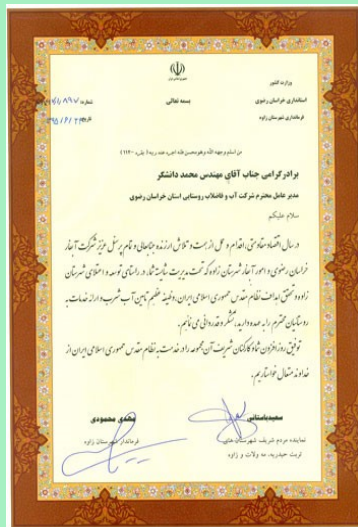 وزارت کشور
استانداری خراسان رضوی
فرمانداری شهرستان زاوه
بسمه تعالی
شماره:
تاریخ:
من اسلم وجهه الله وهو محسن فله اجره عند ربه (بقره ۱۱۲)
برادر گرامی جناب آقای مهندس محمد دانشگر
مدیر عامل محترم شرکت آب و فاضلاب روستایی استان خراسان رضوی
سلام علیکم
در سال اقتصاد مقاومتی، اقدام و عمل از همت و تلاش ارزنده جنابعالی و تمام پرسنل عزیز شرکت آبفار
خراسان رضوی و امور آبفار شهرستان زاوه که تحت مدیریت شما در راستای توسعه و اعتلای شهرستان
زاوه و تحقق اهداف نظام مقدس جمهوری اسلامی ایران، وظیفه عظیم تامین آب شرب و ارائه خدمات به
روستائیان محترم را به عهده دارید، تشکر و قدردانی می نمایم.
توفیق روزافزون شما و کارکنان شریف آن مجموعه را در خدمت به نظام مقدس جمهوری اسلامی ایران از
خداوند متعال خواستاریم.
سعید باستانی
نماینده مردم شریف شهرستان های
تربت حیدریه، مه ولات و زاوه
مهدی محمودی
فرماندار شهرستان زاوه